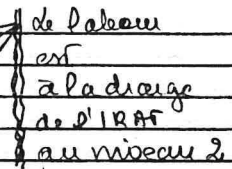 Le
est
à la charge
de l'IRAT
au niveau 2